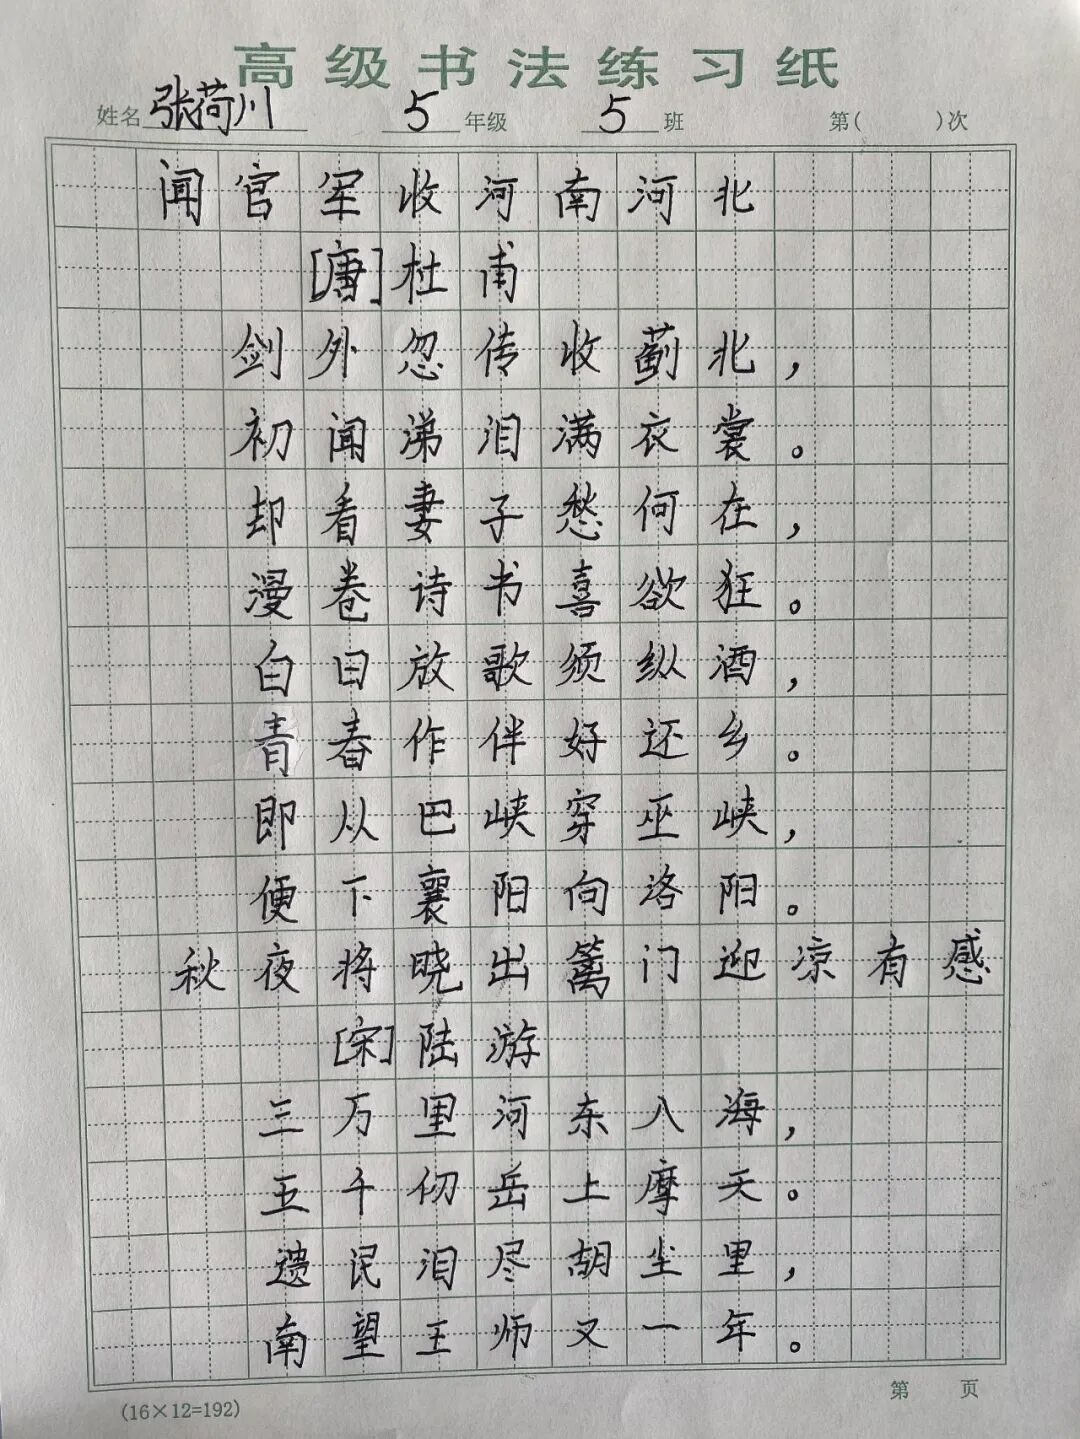 高级书法练习纸
姓名 张荷川 5 年级 5 班 第( )次
闻官军收河南河北
[唐]杜甫
剑外忽传收蓟北，
初闻涕泪满衣裳。
却看妻子愁何在，
漫卷诗书喜欲狂。
白日放歌须纵酒，
青春作伴好还乡。
即从巴峡穿巫峡，
便下襄阳向洛阳。
秋夜将晓出篱门迎凉有感
[宋]陆游
三万里河东入海，
五千仞岳上摩天。
遗民泪尽胡尘里，
南望王师又一年。
第 页
(16×12=192)